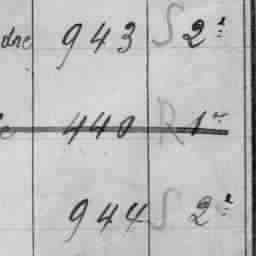 dne 943 S 2e
440 R 1r
944 S 2e